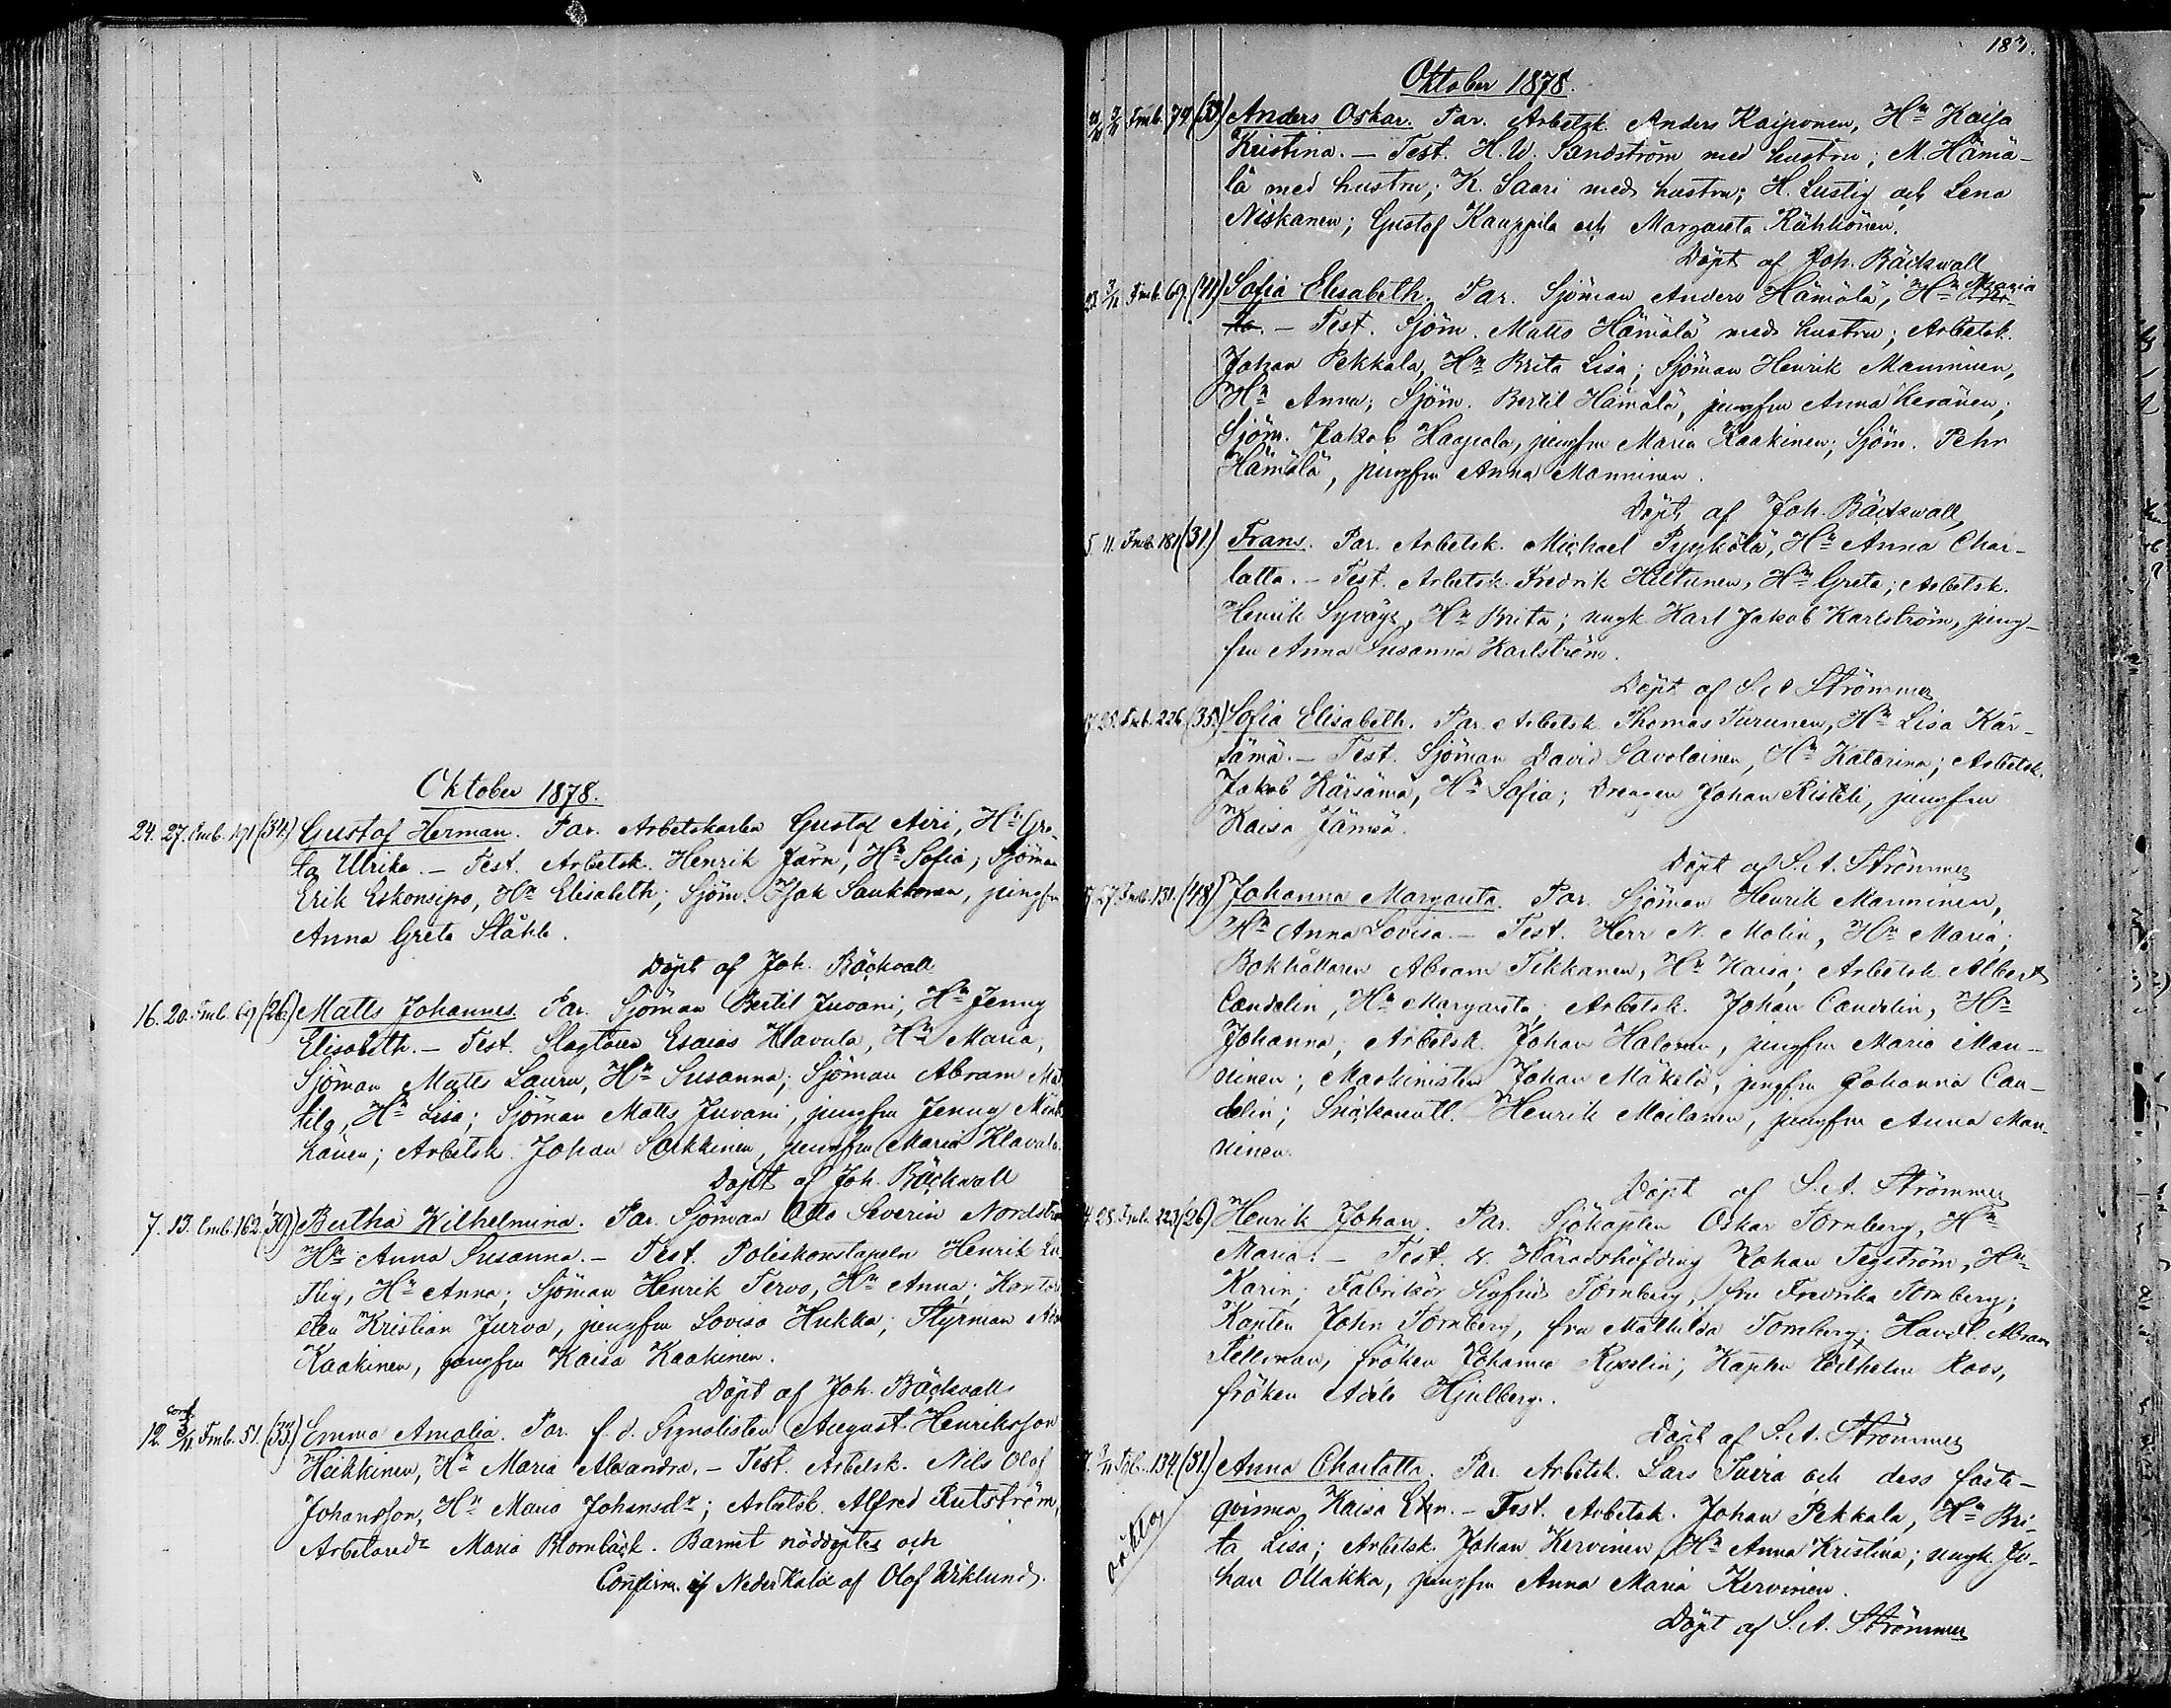 Oktober 1878.
24. 27. Emb. 191 (34.) Gustaf Herman. Par. Arbetskarlen Gustaf Airi, Hn Gre-
ta Ulrika. – Test. Arbetsk. Henrik Järn, Hn Sofia; Sjöman
Erik Eskonsipo, Hn Elisabeth; Sjöm. Isak Saukkonen, jungfru
Anna Greta Ståhle.
Döpt af Joh. Bäckvall
16. 20. Emb. 69 (26.) Matts Johannes. Par. Sjöman Bertil Juvani, Hn Jenny
Elisabeth. – Test. Slagtaren Esaias Klavula, Hn Maria,
Sjöman Matts Lauru, Hn Susanna; Sjöman Abram Mat
tila, Hn Lisa; Sjöman Matts Juvani, jungfru Jenny
känen; Arbetsk. Johan Sarkkinen, jungfru Maria Klavula
Döpt af Joh. Bäckvall
7. 13. Emb. 162. (39.) Bertha Wilhelmina. Par. Sjöman Otto Severin Nordströ
Hn Anna Susanna. – Test. Poliskonstapeln Henrik Lu
stig, Hn Anna; Sjöman Henrik Tervo, Hn Anna; Kontori
sten Kristian Jurva, jungfru Lovisa Hukka; Styrman
Kaakinen, jungfru Kaisa Kaakinen.
Döpt af Joh. Bäckvall
conf.
12. 3/11 Emb. 51. (33.) Emma Amalia. Par. f. d. Signalisten August Henriksson
Heikkinen, Hn Maria Alexandra. – Test. Arbetsk. Nils Olof
Johansson, Hn Maria Johansdr; Arbetsk. Alfred Rutström,
Arbetaredr Maria Blombäck. Barnet nöddöptes och
Confirm. af Neder Kalix af Olof Wiklund.
183.
Oktober 1878.
Emb. 79 (33) Anders Oskar. Par. Arbetsk. Anders Kaiponen, Hn Kaisa
Kristina. – Test. H. W. Sandström med hustru; M. Hämä-
lä med hustru; K. Saari med hustru; H. Lustig och Lena
Niskanen; Gustaf Kauppila och Margareta Rähkönen.
Döpt af Joh. Bäckwall
23. 3/11 Emb. 69. (41) Sofia Elisabeth. Par. Sjöman Anders Hämälä, Hn Maria
– Test. Sjöm. Matts Hämälä med hustru; Arbetsk.
Johan Pekkala, Hn Brita Lisa; Sjöman Henrik Manninen,
Hn Anna; Sjöm. Bertil Hämälä, jungfru Anna Keränen;
Sjöm. Jakob Haapala, jungfru Maria Kaakinen; Sjöm. Pehr
Hämälä, jungfru Anna Manninen.
Döpt af Joh. Bäckwall
5. 11. Emb. 181 (31.) Frans. Par. Arbetsk. Michael Pyykölä, Hn Anna Char-
lotta. – Test. Arbetsk. Fredrik Hiltunen, Hn Greta; Arbetsk.
Henrik Syväys, Hn Brita; ungk. Karl Jakob Karlström, jung-
fru Anna Susanna Karlström.
Döpt af S. A. Strömmer
25. Emb. 226. (35.) Sofia Elisabeth. Par. Arbetsk. Thomas Turunen, Hn Lisa Kär-
sämä. – Test. Sjöman David Savolainen, Hn Katarina; Arbetsk.
Jakob Kärsämä, Hn Sofia; Drengen Johan Risteli, jungfru
Kaisa Jämsä.
Döpt af S. A. Strömmer
27. Emb. 131. (48) Johanna Margareta. Par. Sjöman Henrik Manninen,
Hn Anna Lovisa. – Test. Herr N. Molin, Hn Maria;
Bokhållaren Abram Tikkanen, Hn Kaisa; Arbetsk. Albert
Candelin, Hn Margareta; Arbetsk. Johan Candelin, Hn
Johanna; Arbetsk. Johan Halonen, jungfru Maria Man-
ninen; Maskinisten Johan Mäkelä, jungfru Johanna Can-
delin; Snickareutl. Henrik Moilanen, jungfru Anna Man-
ninen.
Döpt af S. A. Strömmer
28. Emb. 223 (26) Henrik Johan. Par. Sjökapten Oskar Tornberg, Hn
Maria. – Test. v. Häradshöfding Johan Tegström, Hn
Karin; Fabrikör Sigfrid Tornberg, fru Fredrika Tornberg;
Kapten John Tornberg, fru Mathilda Tornberg; Handl. Abram
Pellman, fröken Johanna Rysslin; Kapten Wilhelm Roos,
fröken Adéle Hjulberg.
Döpt af S. A. Strömmer
7. 3/11 Emb. 134. (31.) Anna Charlotta. Par. Arbetsk. Lars Tuira och dess fäste-
qvinna Kaisa. – Test. Arbetsk. Johan Pekkala, Hn Bri-
ta Lisa; Arbetsk. Johan Kervinen, Hn Anna Kristina; ungk. Jo-
han Ollakka, jungfru Anna Maria Kervinen.
oäkta
Döpt af S. A. Strömmer